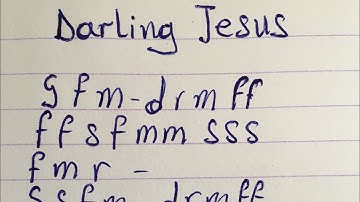 Darling Jesus
s f m - d r m f f
f f s f m m s s s
f m r -
s s f m d r m f f